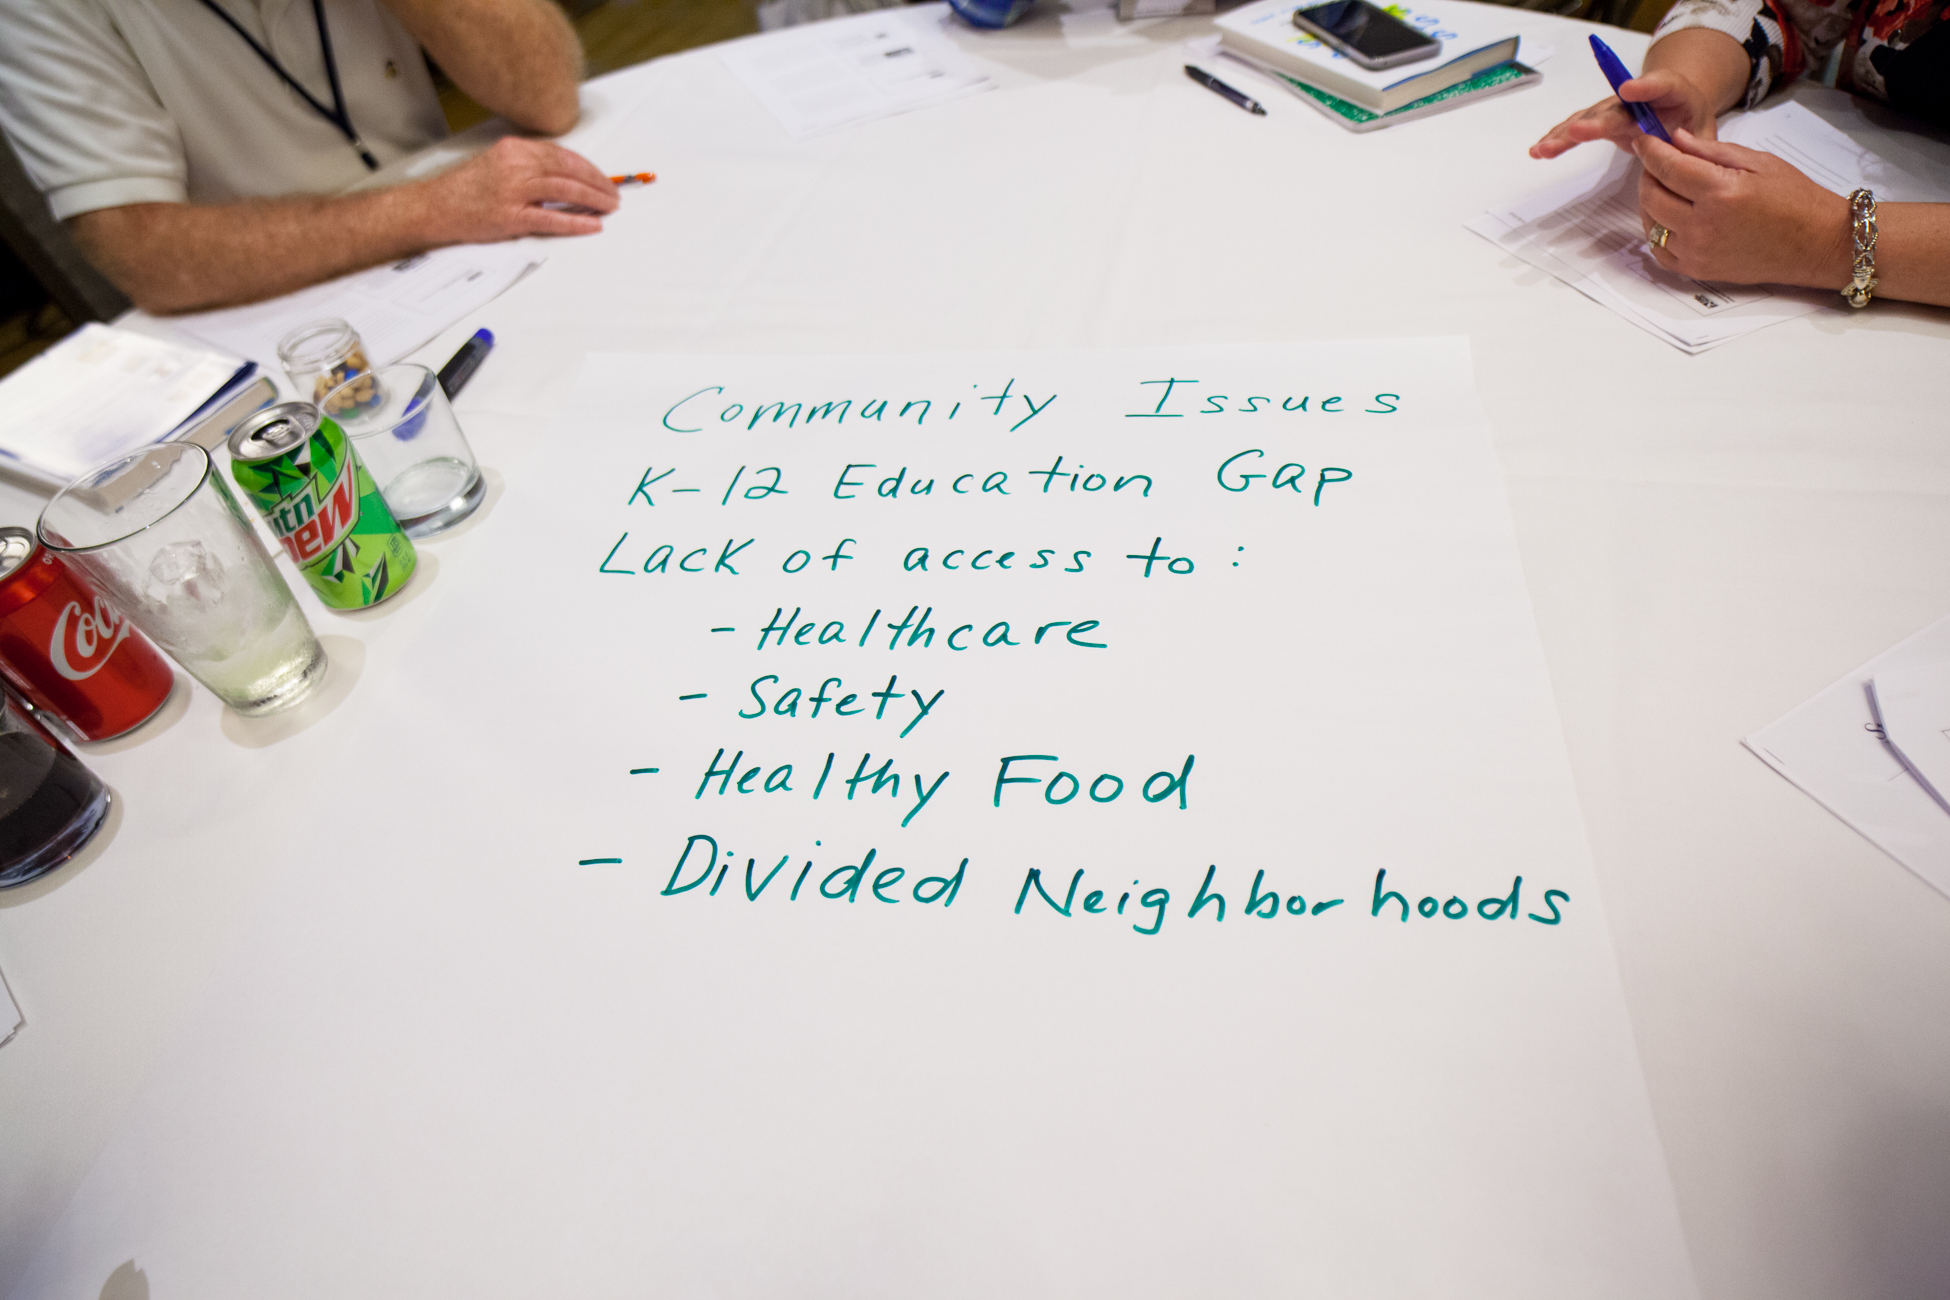 Community Issues
K-12 Education Gap
Lack of access to:
- Healthcare
- Safety
- Healthy Food
- Divided Neighborhoods
mtn
Dew
Coca